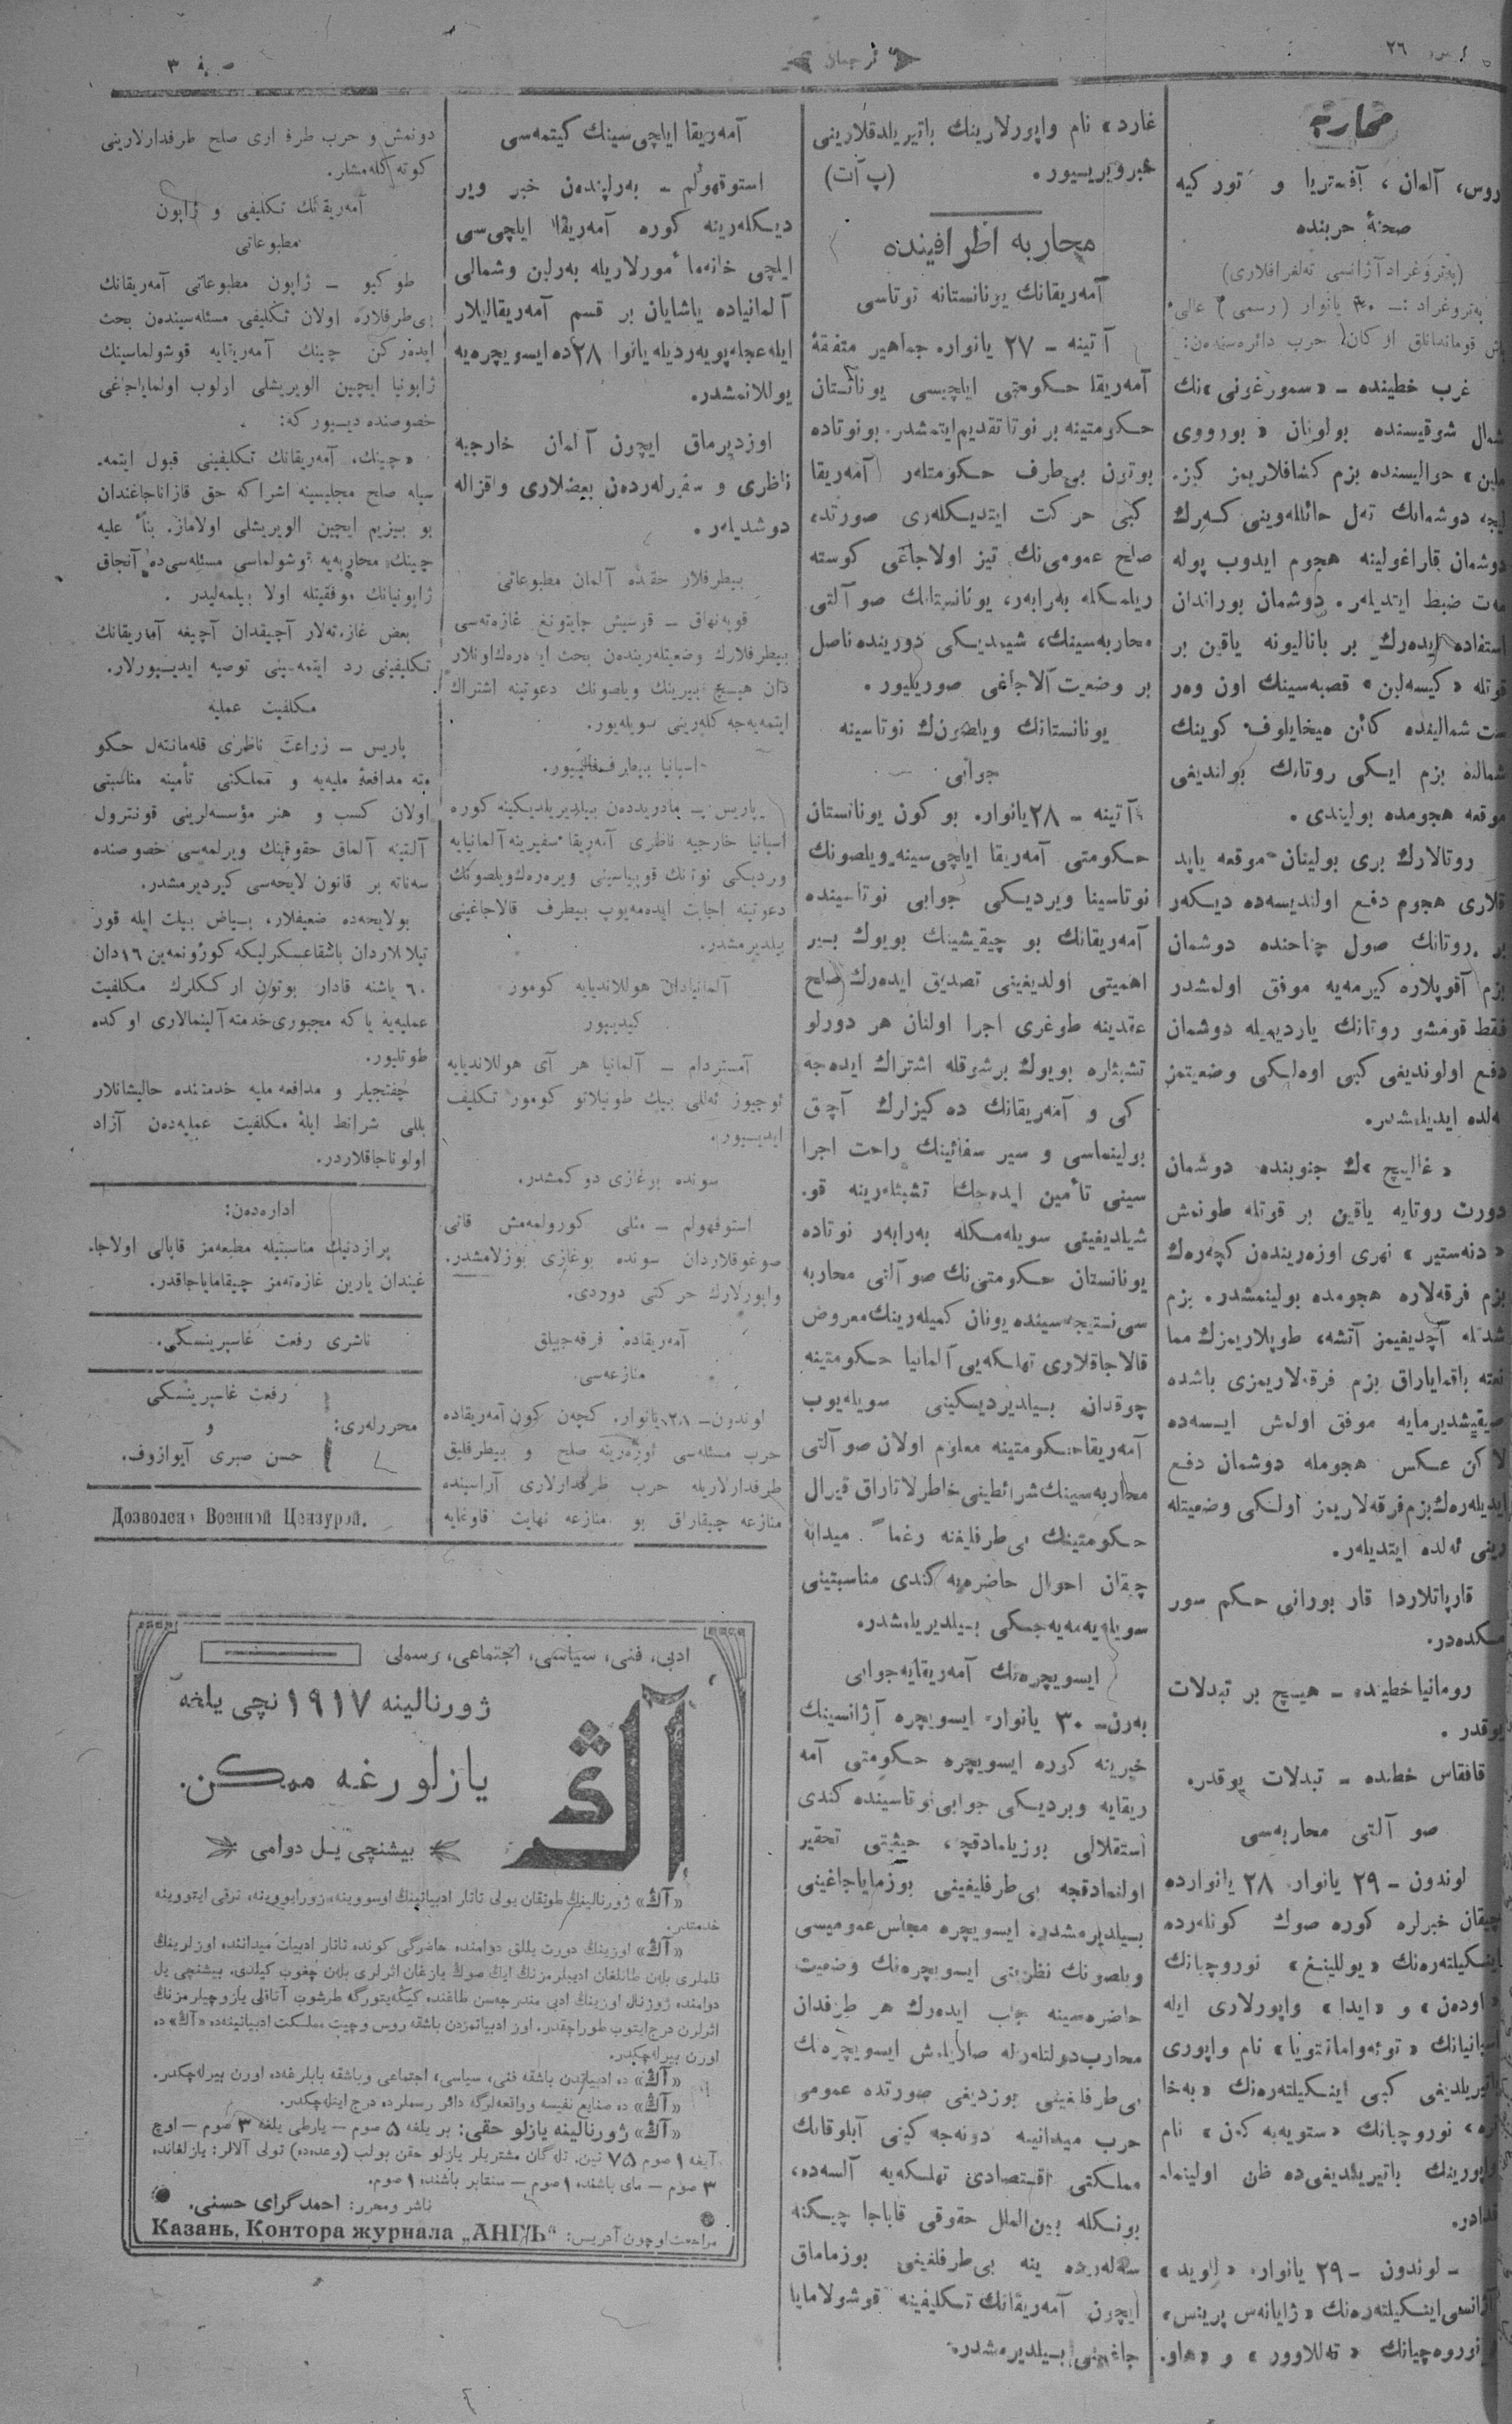 ترجمان
صحیفه ٣
محاربه
روس، آلمان، آفستریا و تورکیه
صحنهٔ حربنده
(پەتروغراد آژانسی تەلغرافلاری)
پەتروغراد :ـ ٣٠ یانوار (رسمی) عالی
باش قوماندانلق ارکان حرب دائره‌سندەن:
غرب خطینده ـ «سمورغونی»نك
شمال شرقیسنده بولونان «بورووی
ملین» حوالیسنده بزم کشافلاریمز کیز.
لیجه دوشمانك تەل حائللەوینی کسەرك
دوشمان قاراغولینه هجوم ایدوب پوله
مەت ضبط ایتدیلەر. دوشمان بوراندان
استفاده ایدەرك بر باتالیونه یاقین بر
قوتله «کیسەلین» قصبه‌سینك اون وەر
ست شمالیفده کائن میخایلوف کوینك
شمالنده بزم ایکی روتانك بولندیغی
موقعه هجومده بولیندی.
روتالارك بری بولینان موقعه یاپد
قلاری هجوم دفع اولندیسه‌ده دیکەر
بر روتانك صول جناحنده دوشمان
بزم آقوپلاره کیرمەیه موفق اولمشدر
فقط قومشو روتانك یاردیمیله دوشمان
دفع اولوندیغی کبی اوەلکی وضعیتمز
ەلده ایدیلمشدر.
«غالیچ»ك جنوبنده دوشمان
دورت روتایه یاقین بر قوتله طونمش
«دنەستیر» نهری اوزەریندەن کچەرەك
بزم فرقەلاره هجومده بولینمشدر. بزم
شدتله آچدیغیمز آتشه، طوپلاریمزك مما
نعته باقمایاراق بزم فرقەلاریمزی باشده
صیقیشدیرمایه موفق اولمش ایسەده
لاکن عکس هجومله دوشمان دفع
ایدیلەرەك بزم فرقەلاریمز اولکی وضعیتله
رینی ئەلده ایتدیلەر.
قارپاتلاردا قار بورانی حکم سور
مکدەدر.
رومانیا خطینده ـ هیچ بر تبدلات
یوقدر.
قافقاس خطنده ـ تبدلات یوقدر.
صو آلتی محاربه‌سی
لوندون ـ ٢٩ یانوار. ٢٨ یانوارده
چیقان خبرلره کوره صوك کونلەرده
اینکیلتەرەنك «یوللینغ» نوروچیانك
«اودەن» و «ایدا» واپورلاری ایله
اسپانیانك نام واپوری
باتیریلدیغی کبی اینکیلتەرەنك «بەخا
نوروچیانك نام
واپورینك باتیریلدیغی‌ده ظن اولینما.
قدادر.
ـ لوندون ـ ٢٩ یانوار. «لوید»
آژانسی اینکیلتەرەنك «ژاپانەس پرینس»
نوروەچیانك «تەللاوور» و «هاو.
غارد» نام واپورلارینك باتیریلدقلارینی
خبر ویریسیور. (پ آت)
محاربه اطرافینده
آمەریقانك یونانستانه نوتاسی
آتینه ـ ٢٧ یانوار. جماهیر متفقهٔ
آمەریقا حکومتی ایلچیسی یونانستان
حکومتینه بر نوتا تقدیم ایتمشدر. بو نوتاده
بوتون بی‌طرف حکومتلەر آمەریقا
کبی حرکت ایتدیکلەری صورتده
صلح عمومی‌نك تیز اولاجاغی کوسته
ریلمکله بەرابەر، یونانستانك صو آلتی
محاربەسینك، شیمدیکی دورینده ناصل
بر وضعیت آلاجاغی صوریلیور.
یونانستانك ویلصونك نوتاسینه
جوابی
آتینه ـ ٢٨ یانوار. بو کون یونانستان
حکومتی آمەریقا ایلچی‌سینه ویلصونك
نوتاسینا ویردیکی جوابی نوتاسینده
آمەریقانك بو چیقیشینك بویوك بیر
اهمیتی اولدیغینی تصدیق ایدەرك صلح
عقدینه طوغری اجرا اولنان هر دورلو
تشبثاره بویوك بر شوقله اشتراك ایدەجه
کی و آمەریقانك ده کیزلرك آچق
بولینماسی و سیر سفائینك راحت اجرا
سینی تأمین ایدەجك تشبثلەرینه قو.
شیلدیغینی سویلەمکله بەرابەر نوتاده
یونانستان حکومتی‌نك صو آلتی محاربه
سی نستیجه‌سینده یونان کمیلەرینك معروض
قالاجاقلاری تهلکەیی آلمانیا حکومتینه
چوقدان بیلدیردیکینی سویلەیوب
آمەریقا حکومتینه معلوم اولان صو آلتی
محاربه‌سینك شرائطینی خاطرلاتاراق قیرال
حکومتینك بی‌طرفلیغنه رغماً میدانه
چیقان احوال حاضرەیه کندی مناسبتینی
سویلەیەمەیەجکی بیلدیریلمشدر.
ایسویچرەنك آمەریقایه جوابی
بەرن ـ ٣٠ یانوار. ایسویچره آژانسینك
خبرینه کوره ایسویچره حکومتی آمه
ریقایه ویردیکی جوابی نوتاسینده کندی
استقلالی بوزیلمادقچه، حیثیتی تحقیر
اولنمادقجه بی‌طرفلیغینی بوزمایاجاغینی
بیلدیرمشدر. ایسویچره مجلس عمومیسی
ویلصونك نظریتی ایسویچرەنك وضعیت
حاضره‌سینه جلب ایدەرك هر طرفدان
محارب دولتلەرله صاریلمش ایسویچرەنك
بی‌طرفلغینی بوزدیغی صورتده عمومی
حرب میدانینه دونەجه کینی آبلوقانك
مملکتی اقتصادی تهلکەیه آلسەده،
بونکله بین‌الملل حقوقی قاباجا چیکنه
سەلەرده ینه بی‌طرفلغینی بوزماماق
ایچون آمەریقانك تکلیفینه قوشولامایا
جاغینی بیلدیرمشدر.
آمەریقا ایلچی‌سینك کیتمه‌سی
استوقهولم ـ بەرلیندەن خبر ویر
دیکلەرینه کوره آمەریقا ایلچی‌سی
ایلچی خانه مأمورلاریله بەرلین وشمالی
آلمانیاده یاشایان بر قسم آمەریقالیلار
ایله عجله پویەزدیله یانوار ٢٨ده ایسویچرەیه
یوللانمشدر.
اوزدیرماق ایچون آلمان خارجیه
ناظری و سفیرلەردەن بعضلاری واقزاله
دوشدیلەر.
بیطرفلار حقنده آلمان مطبوعاتی
قوپەنهاق ـ قرسیش جایتونغ غازەتەسی
بیطرفلارك وضعیتلەریندەن بحث ایدەرەك اونلار
دان هیچ بیرینك ویلصونك دعوتینه اشتراك
ایتمەیەجەکلەرینی سویلەیور.
اسپانیا بیطرف قالییور.
پاریس ـ مادریددەن بیلدیریلدیکینه کوره
اسپانیا خارجیه ناظری آمەریقا سفیرینه آلمانیایه
وردیکی نوتانك قوپیاسینی ویرەرەك ویلصونك
دعوتینه اجابت ایدەمەیوب بیطرف قالاجاغینی
بیلدیرمشدر.
آلمانیادان هوللاندیایه کومور
کیدییور
آمستردام ـ آلمانیا هر آی هوللاندیایه
ئوچیوز ئەللی بیك طونیلاتو کومور تکلیف
ایدییور.
سونده بوغازی دوکمشدر.
استوقهولم ـ مثلی کورولمەمش قاتی
صوغوقلاردان سونده بوغازی بوزلامشدر.
واپورلارك حرکتی دوردی.
آمەریقاده فرقەجیلق
منازعەسی
لوندون ـ ٢٨ یانوار. کچەن کون آمەریقاده
حرب مسئلەسی ئوزەرینه صلح و بیطرفلیق
طرفدارلاریله حرب طرفدارلاری آراسینده
منازعه چیقاراق بو منازعه نهایت قاوغایه
دونمش و حرب طرفداری صلح طرفدارلارینی
کوتەکلەمشلر.
آمەریقانك تکلیفی و ژاپون
مطبوعاتی
طوکیو ـ ژاپون مطبوعاتی آمەریقانك
بی‌طرفلاره اولان تکلیفی مسئلەسیندەن بحث
ایدەرکن چینك آمەریقایه قوشولماسینك
ژاپونیا ایچین الویریشلی اولوب اولمایاجاغی
خصوصنده دییور که:
«چینك، آمەریقانك تکلیفینی قبول ایتمه.
سیله صلح مجلیسینه اشراکه حق قازاناجاغندان
بو بیزیم ایچین الویریشلی اولاماز. بناً علیه
چینك محاربەیه قوشولماسی مسئلەسی‌ده آنجاق
ژاپونیانك موفقیتله اولا بیلمەلیدر.
بعض غازەتەلار آچیقدان آچیغه آمەریقانك
تکلیفینی رد ایتمەسینی توصیه ایدییورلار.
مکلفیت عملیه
پاریس ـ زراعت ناظری قلەمانتەل حکو
مته مدافعهٔ ملیەیه و مملکتی تأمینه مناسبتی
اولان کسب و هنر مؤسسەلرینی قونترول
آلتینه آلماق حقوقینك ویرلمەسی خصوصنده
سەناته بر قانون لایحەسی کیردیرمشدر.
بولایحەده ضعیفلار، بیاض بیلت ایله قور
تیلانلاردان باشقا عسکرلیکه کورونمەین ١٦دان
٦٠ یاشنه قادار بوتون ارککلرك مکلفیت
عملیەیه یا که مجبوری خدمته آلینمالاری اوکده
طوتلیور.
چفتجیلر و مدافعه ملیه خدمتنده چالیشانلار
بللی شرائط ایله مکلفیت عملیەدەن آزاد
اولوناجاقلاردر.
ادارەدەن:
پرازدنیك مناسبتیله مطبعەمز قاپالی اولاجا.
غیندان یارین غازەتەمز چیقامایاجاقدر.
ناشری رفعت غاسپرینسکی.
محررلەری:
رفعت غاسپرینسکی
و
حسن صبری آیوازوف.
Дозволено Военной Цензурой.
ادبی، فنی، سیاسی، اجتماعی، رسملی
آڭ
ژورنالینه ١٩١٧ نچی یلغه
یازلورغه ممکن.
بیشنچی یـل دوامی
«آڭ» ژورنالینڭ طوتقان یولی تاتار ادبیاتینڭ اوسووینه، زورایووینه، ترقی ایتووینه
خدمتدر.
«آڭ» اوزینڭ دورت یللق دوامنده حاضرگی کونده تاتار ادبیات میداننده اوزلرینڭ
قلملری بلەن طانلغان ادیبلرمزنڭ ایڭ صوڭ یازغان اثرلری بلەن چغوب کیلدی. بیشنچی یل
دوامنده ژورنال اوزینڭ ادبی مندرجه‌سن طاغنده کیڭەیتورگه طرشوب آتاقلی یازوچیلرمزنڭ
اثرلرن درج ایتوب طوراچقدر. اوز ادبیاتمزدن باشقه روس وچیت مملکت ادبیاتینه‌ده «آڭ» ده
اورن بیرلەچکدر.
«آڭ» ده ادبیاتدن باشقه فنی، سیاسی، اجتماعی وباشقه بابلرغەده اورن بیرلەچکدر.
«آڭ» ده صنایع نفیسه وواقعەلرگه دائر رسملرده درج ایتلەچکدر.
«آڭ» ژورنالینه یازلو حقی: بر یلغه ۵ صوم — یارطی یلغه ٣ صوم — اوچ
آیغه ١ صوم ٧۵ تین. تلەگان مشتریلر یازلو حقن بولب (وعدەده) تولی آلالر: یازلغانده
٣ صوم — مای باشنده ١ صوم — سنتابر باشنده ١ صوم.
ناشر ومحرر: احمدگرای حسنی.
مراجعت اوچون آدریس: Казань, Контора журнала „АНГЪ"